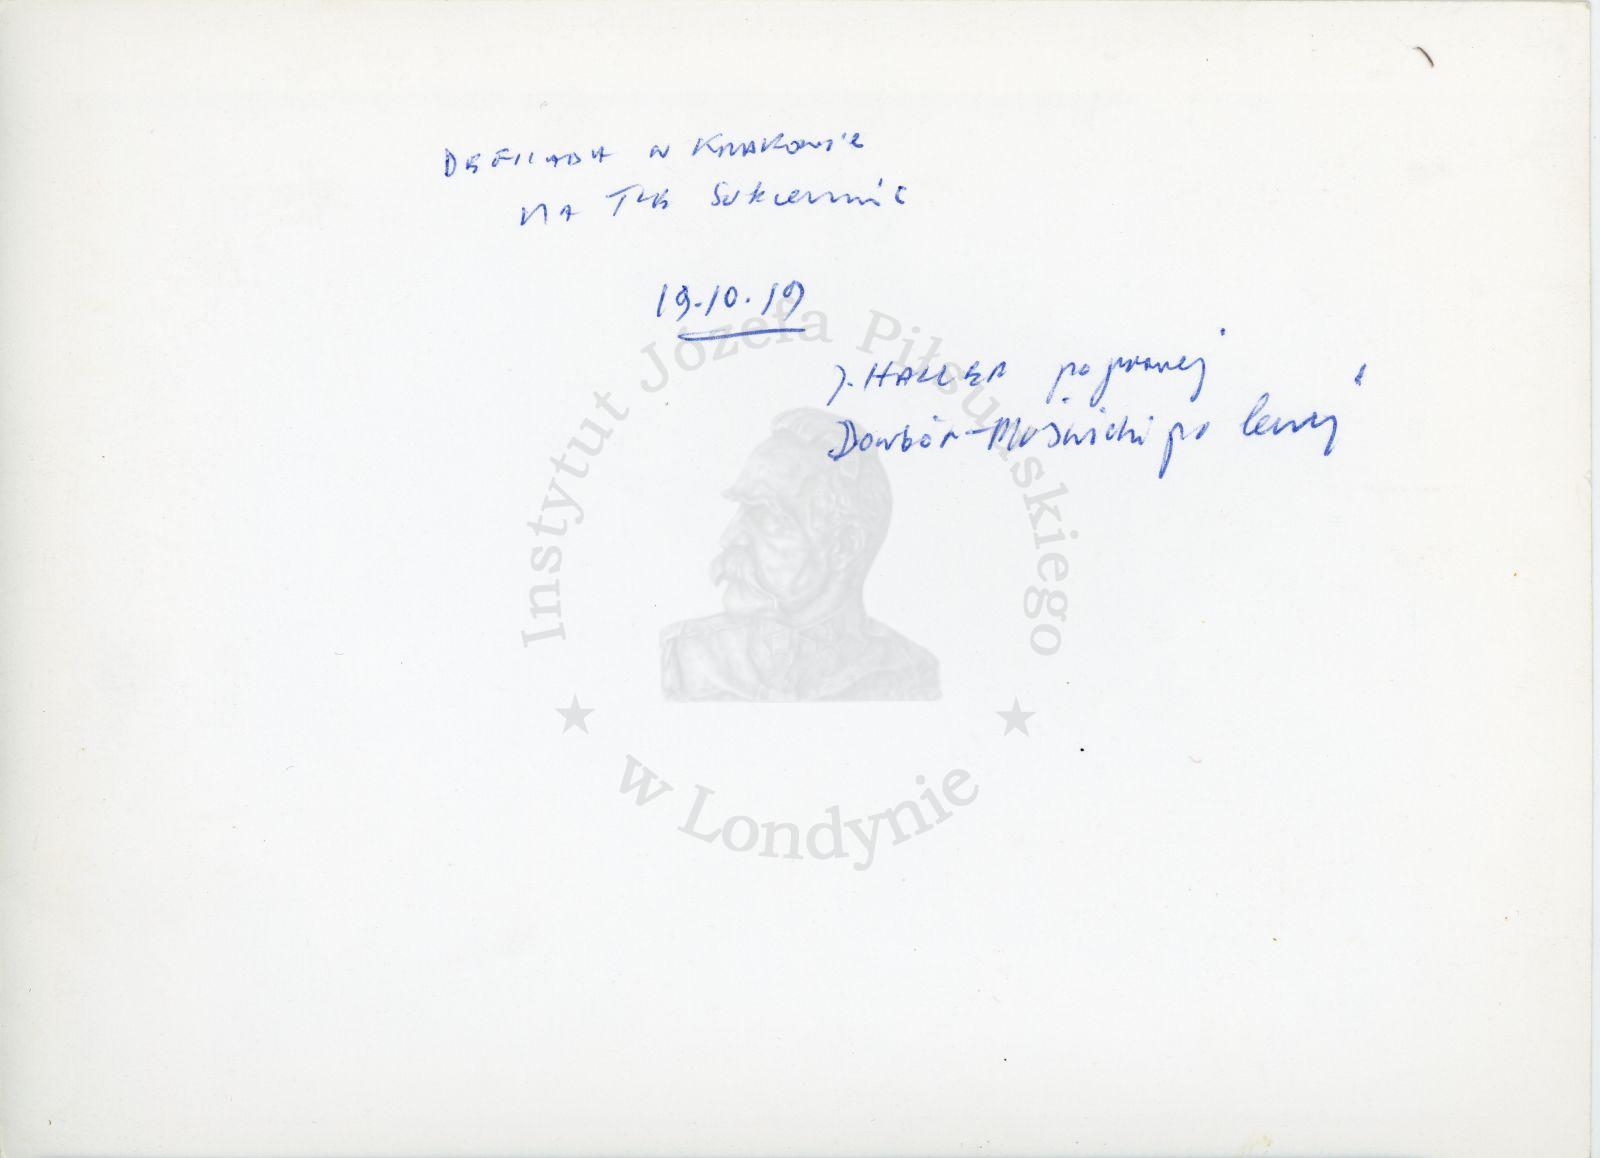 DEFILADA W KRAKOWIE
NA TLE Sukiennic
19.10.19
J. HALLER po prawej
Dowbór-Muśnicki po lewej
Instytut Józefa Piłsudskiego
w Londynie